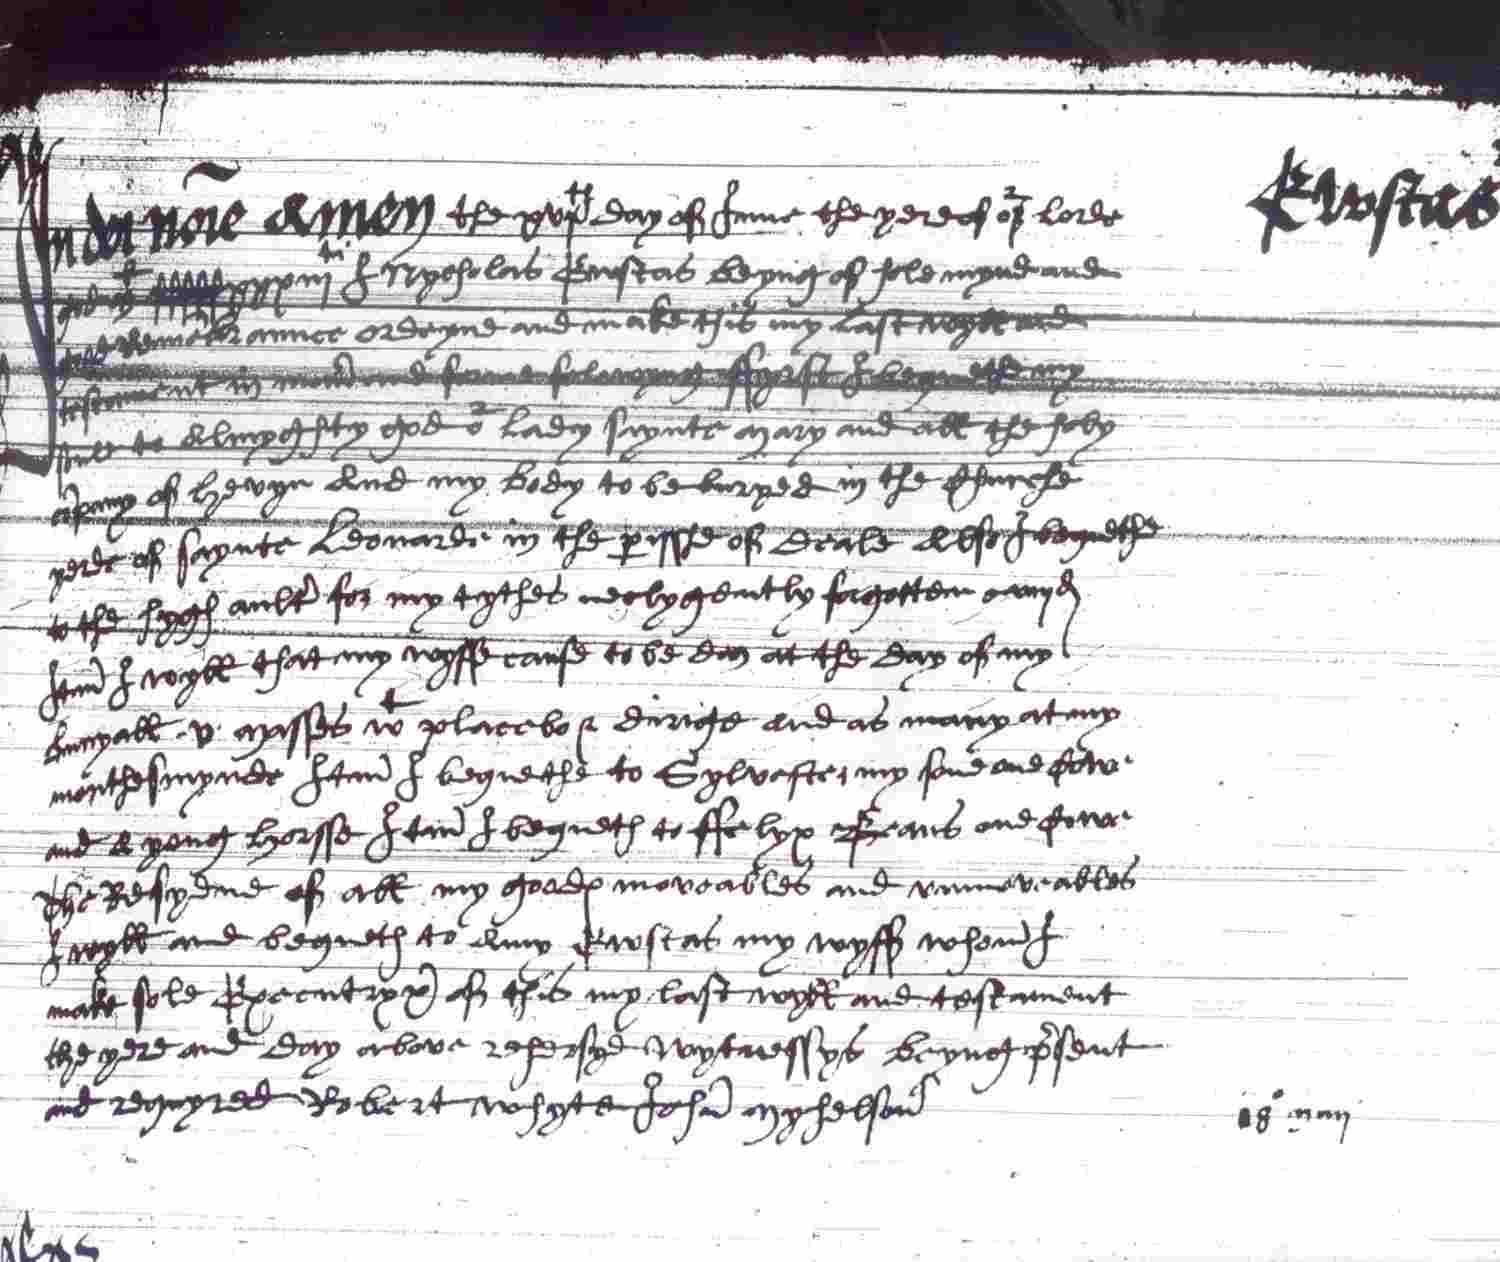 In dei noīe Amen the xvjth day of June the yere of or lorde
god mvc xxxiijti I Nycholas Ewstas beyng of hole mynd and
good Remēbraunce ordeyne and make this my last wyll and
testament in mañ and forme folowyng ffyrst I bequethe my
soule to Allmyghty god or lady saynte mary and all the holy
cōpany of hevyn And my body to be buryed in the Churche
yerde of saynte Leonarde in the pisshe of Deale Also I bequethe
to the hygh aultr for my tythes neclygently forgotten
Itm I wyll that my wyffe cause to be don at the day of my
buryall v masses wt placebo & dirige and as many at my
monthes mynde Itm I bequethe to Sylvester my sone one Cowe
and a yong horsse Itm I bequeth to ffelyx Evans one Cowe
The Resydue of all my goodes moveables and unmoveables
I wyll and bequeth to Amy Ewstas my wyff whom I
make sole Executryx of this my last wyll and testament
the yere and day above rehersyd Wytnessys beyng p̄sent
and requyred Robert Whyte John Myhelson
Ewstas
18 maij